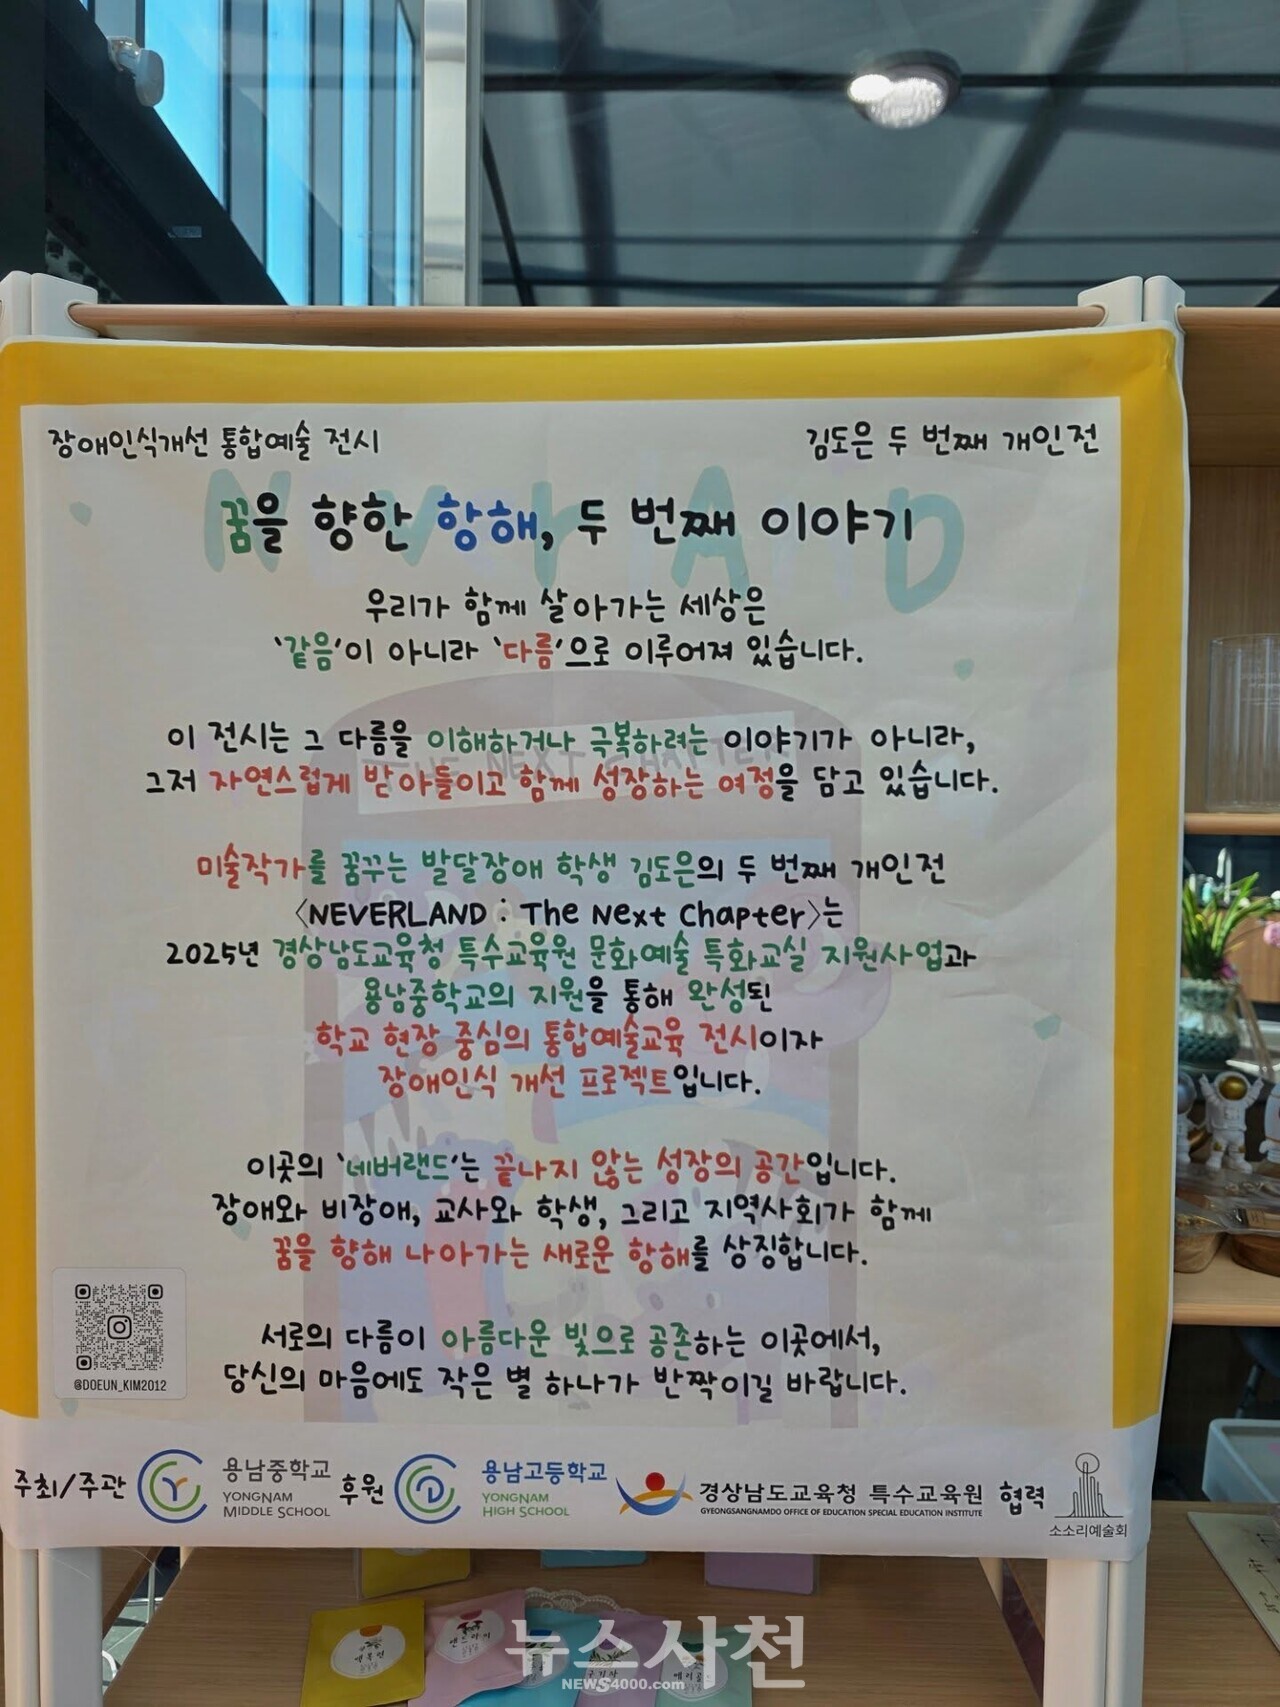 장애인식개선 통합예술 전시
김도은 두 번째 개인전
NeverlAnD
꿈을 향한 항해, 두 번째 이야기
우리가 함께 살아가는 세상은
'같음'이 아니라 '다름'으로 이루어져 있습니다.
이 전시는 그 다름을 이해하거나 극복하려는 이야기가 아니라,
그저 자연스럽게 받아들이고 함께 성장하는 여정을 담고 있습니다.
THE NEXT CHAPTER
미술작가를 꿈꾸는 발달장애 학생 김도은의 두 번째 개인전
〈NEVERLAND : The Next Chapter〉는
2025년 경상남도교육청 특수교육원 문화예술 특화교실 지원사업과
용남중학교의 지원을 통해 완성된
학교 현장 중심의 통합예술교육 전시이자
장애인식 개선 프로젝트입니다.
이곳의 '네버랜드'는 끝나지 않는 성장의 공간입니다.
장애와 비장애, 교사와 학생, 그리고 지역사회가 함께
꿈을 향해 나아가는 새로운 항해를 상징합니다.
서로의 다름이 아름다운 빛으로 공존하는 이곳에서,
당신의 마음에도 작은 별 하나가 반짝이길 바랍니다.
@DOEUN_KIM2012
주최/주관
용남중학교
YONGNAM
MIDDLE SCHOOL
후원
용남고등학교
YONGNAM
HIGH SCHOOL
경상남도교육청 특수교육원
GYEONGSANGNAMDO OFFICE OF EDUCATION SPECIAL EDUCATION INSTITUTE
협력
소소리예술회
뉴스사천
NEWS4000.com